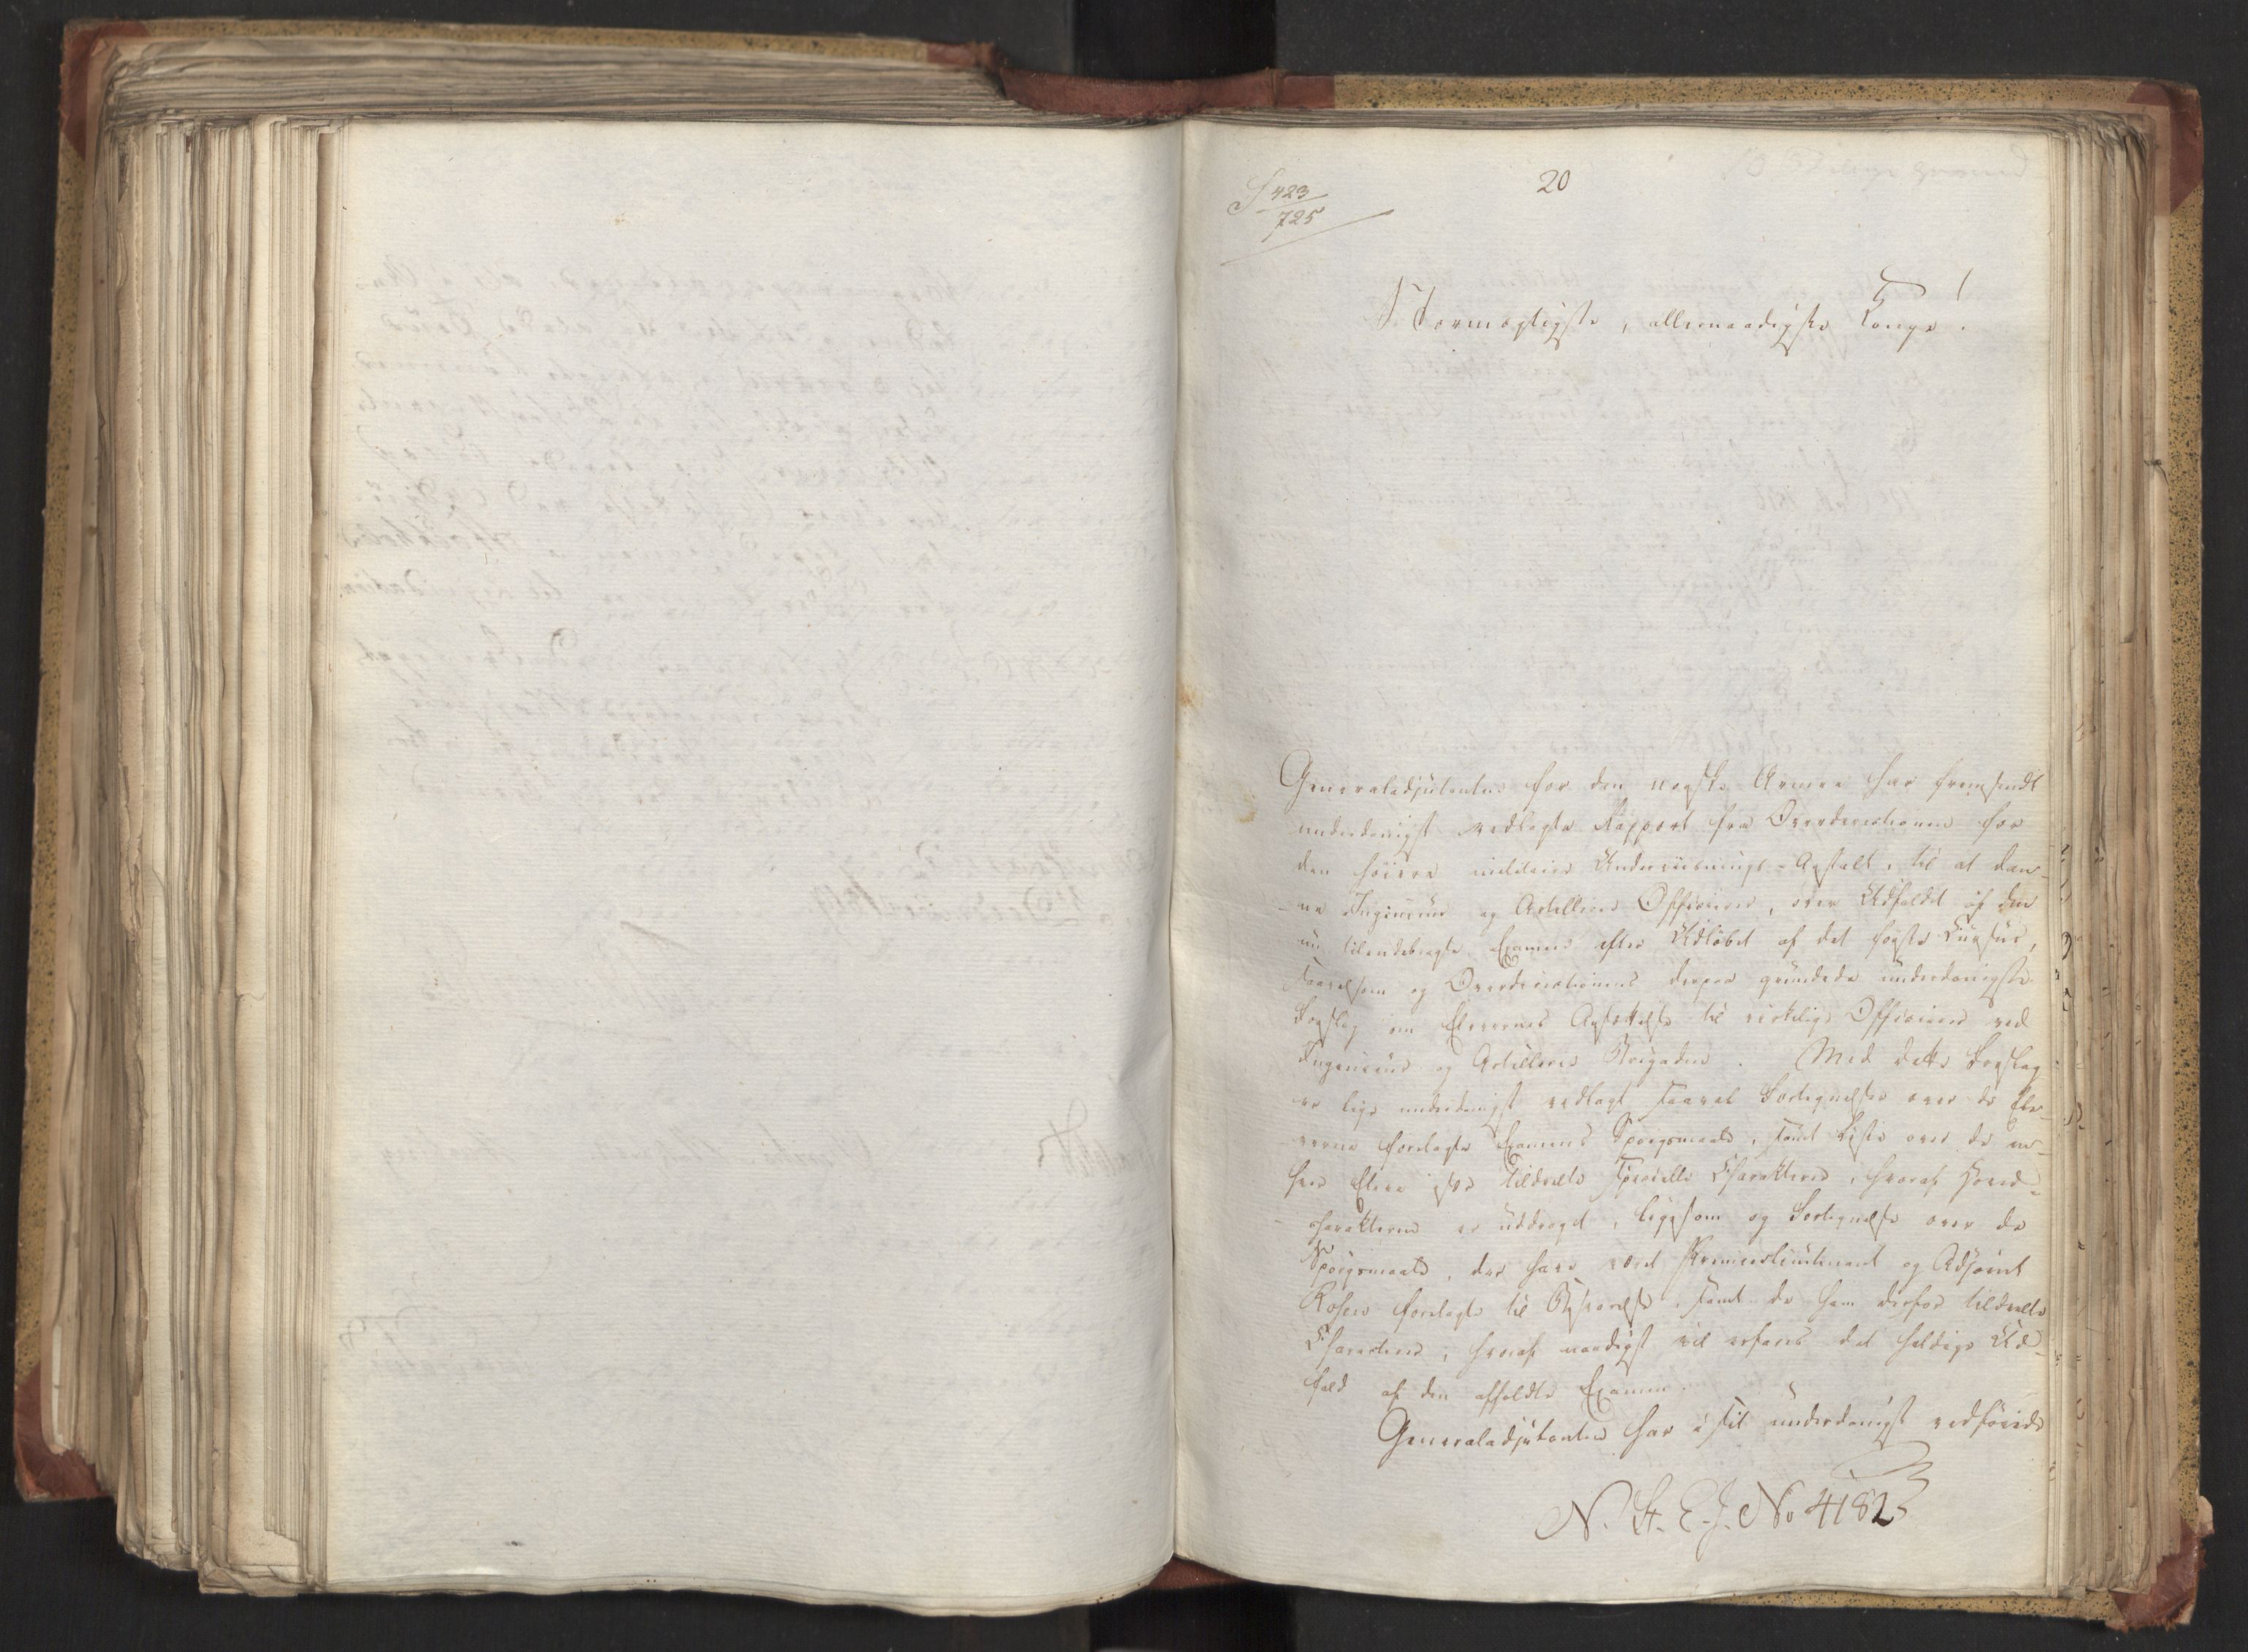 S 423
725
20
Stormægtigste, allernaadigste Konge!
Generaladjutanten for den norske Armee har fremsendt
underdanigst vedlagte Rapport fra Overdirectionen for
den høiere militaire Underviisnings-Anstalt, til at dan-
ne Ingenieur og Artillerie Officierer, over Udfaldet af den
nu tilendebragte Examen efter Udløbet af det første Cursus,
saavelsom og Overdirectionens derpaa grundede underdanigste
Forslag om Elevernes Ansættelse til virkelige Officierer ved
Ingenieur og Artillerie Brigaden. Med dette Forslag
er lige underdanigst vedlagt saavel Fortegnelse over de Ele-
verne forelagte Examens Spørgsmaale, samt Liste over de en-
hver Elev især tildeelte specielle Charakterer, hvoraf Hoved-
charakteren er uddraget, ligesom og Fortegnelse over de
Spørgsmaale, der have været Premierlieutenant og Adjoint
Rosen forelagte til Besvarelse, samt de ham derfor tildeelte
Characterer; hvoraf naadigst vil erfares det heldige Ud-
fald af den afholdte Examen.
Generaladjutanten har i sit underdanigst vedføiede
N. St. E. J. No 4182